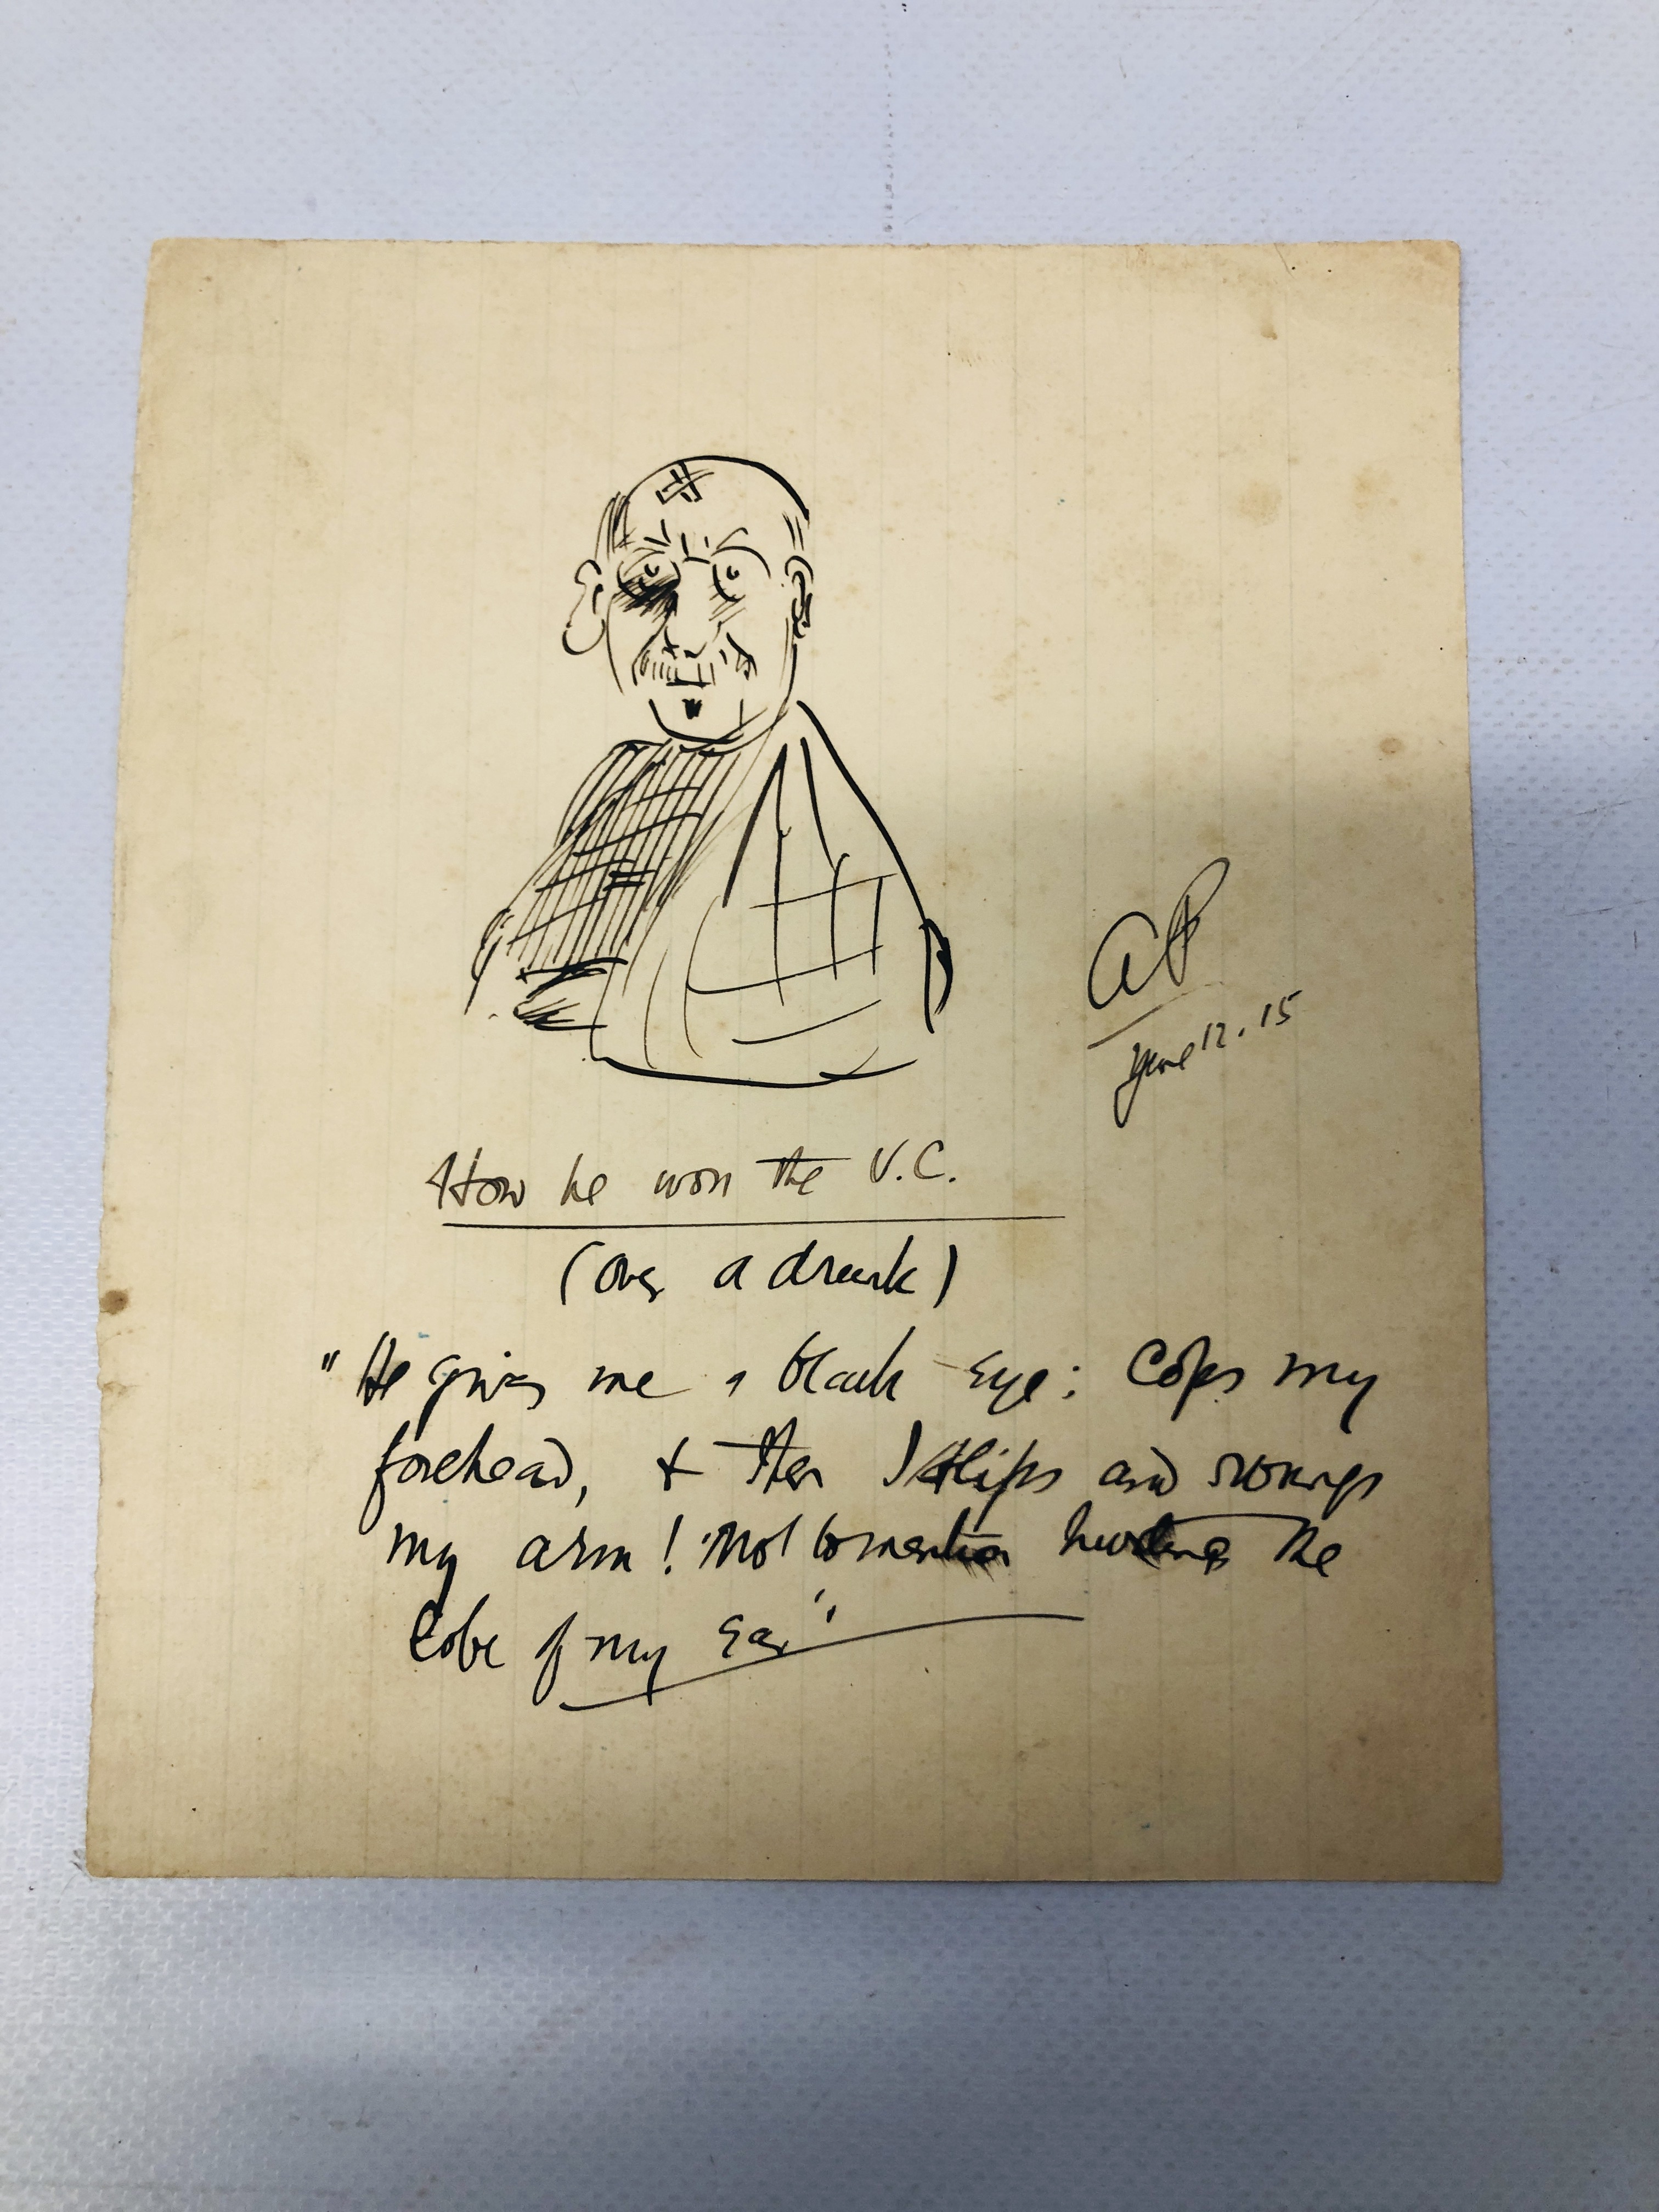 AP
June 12. 15
How he won the V.C.
(over a drunk)
"He gives me a black eye: Cops my
forehead, & then I slips and
my arm! Not to mention hurting the
lobe of my ear"